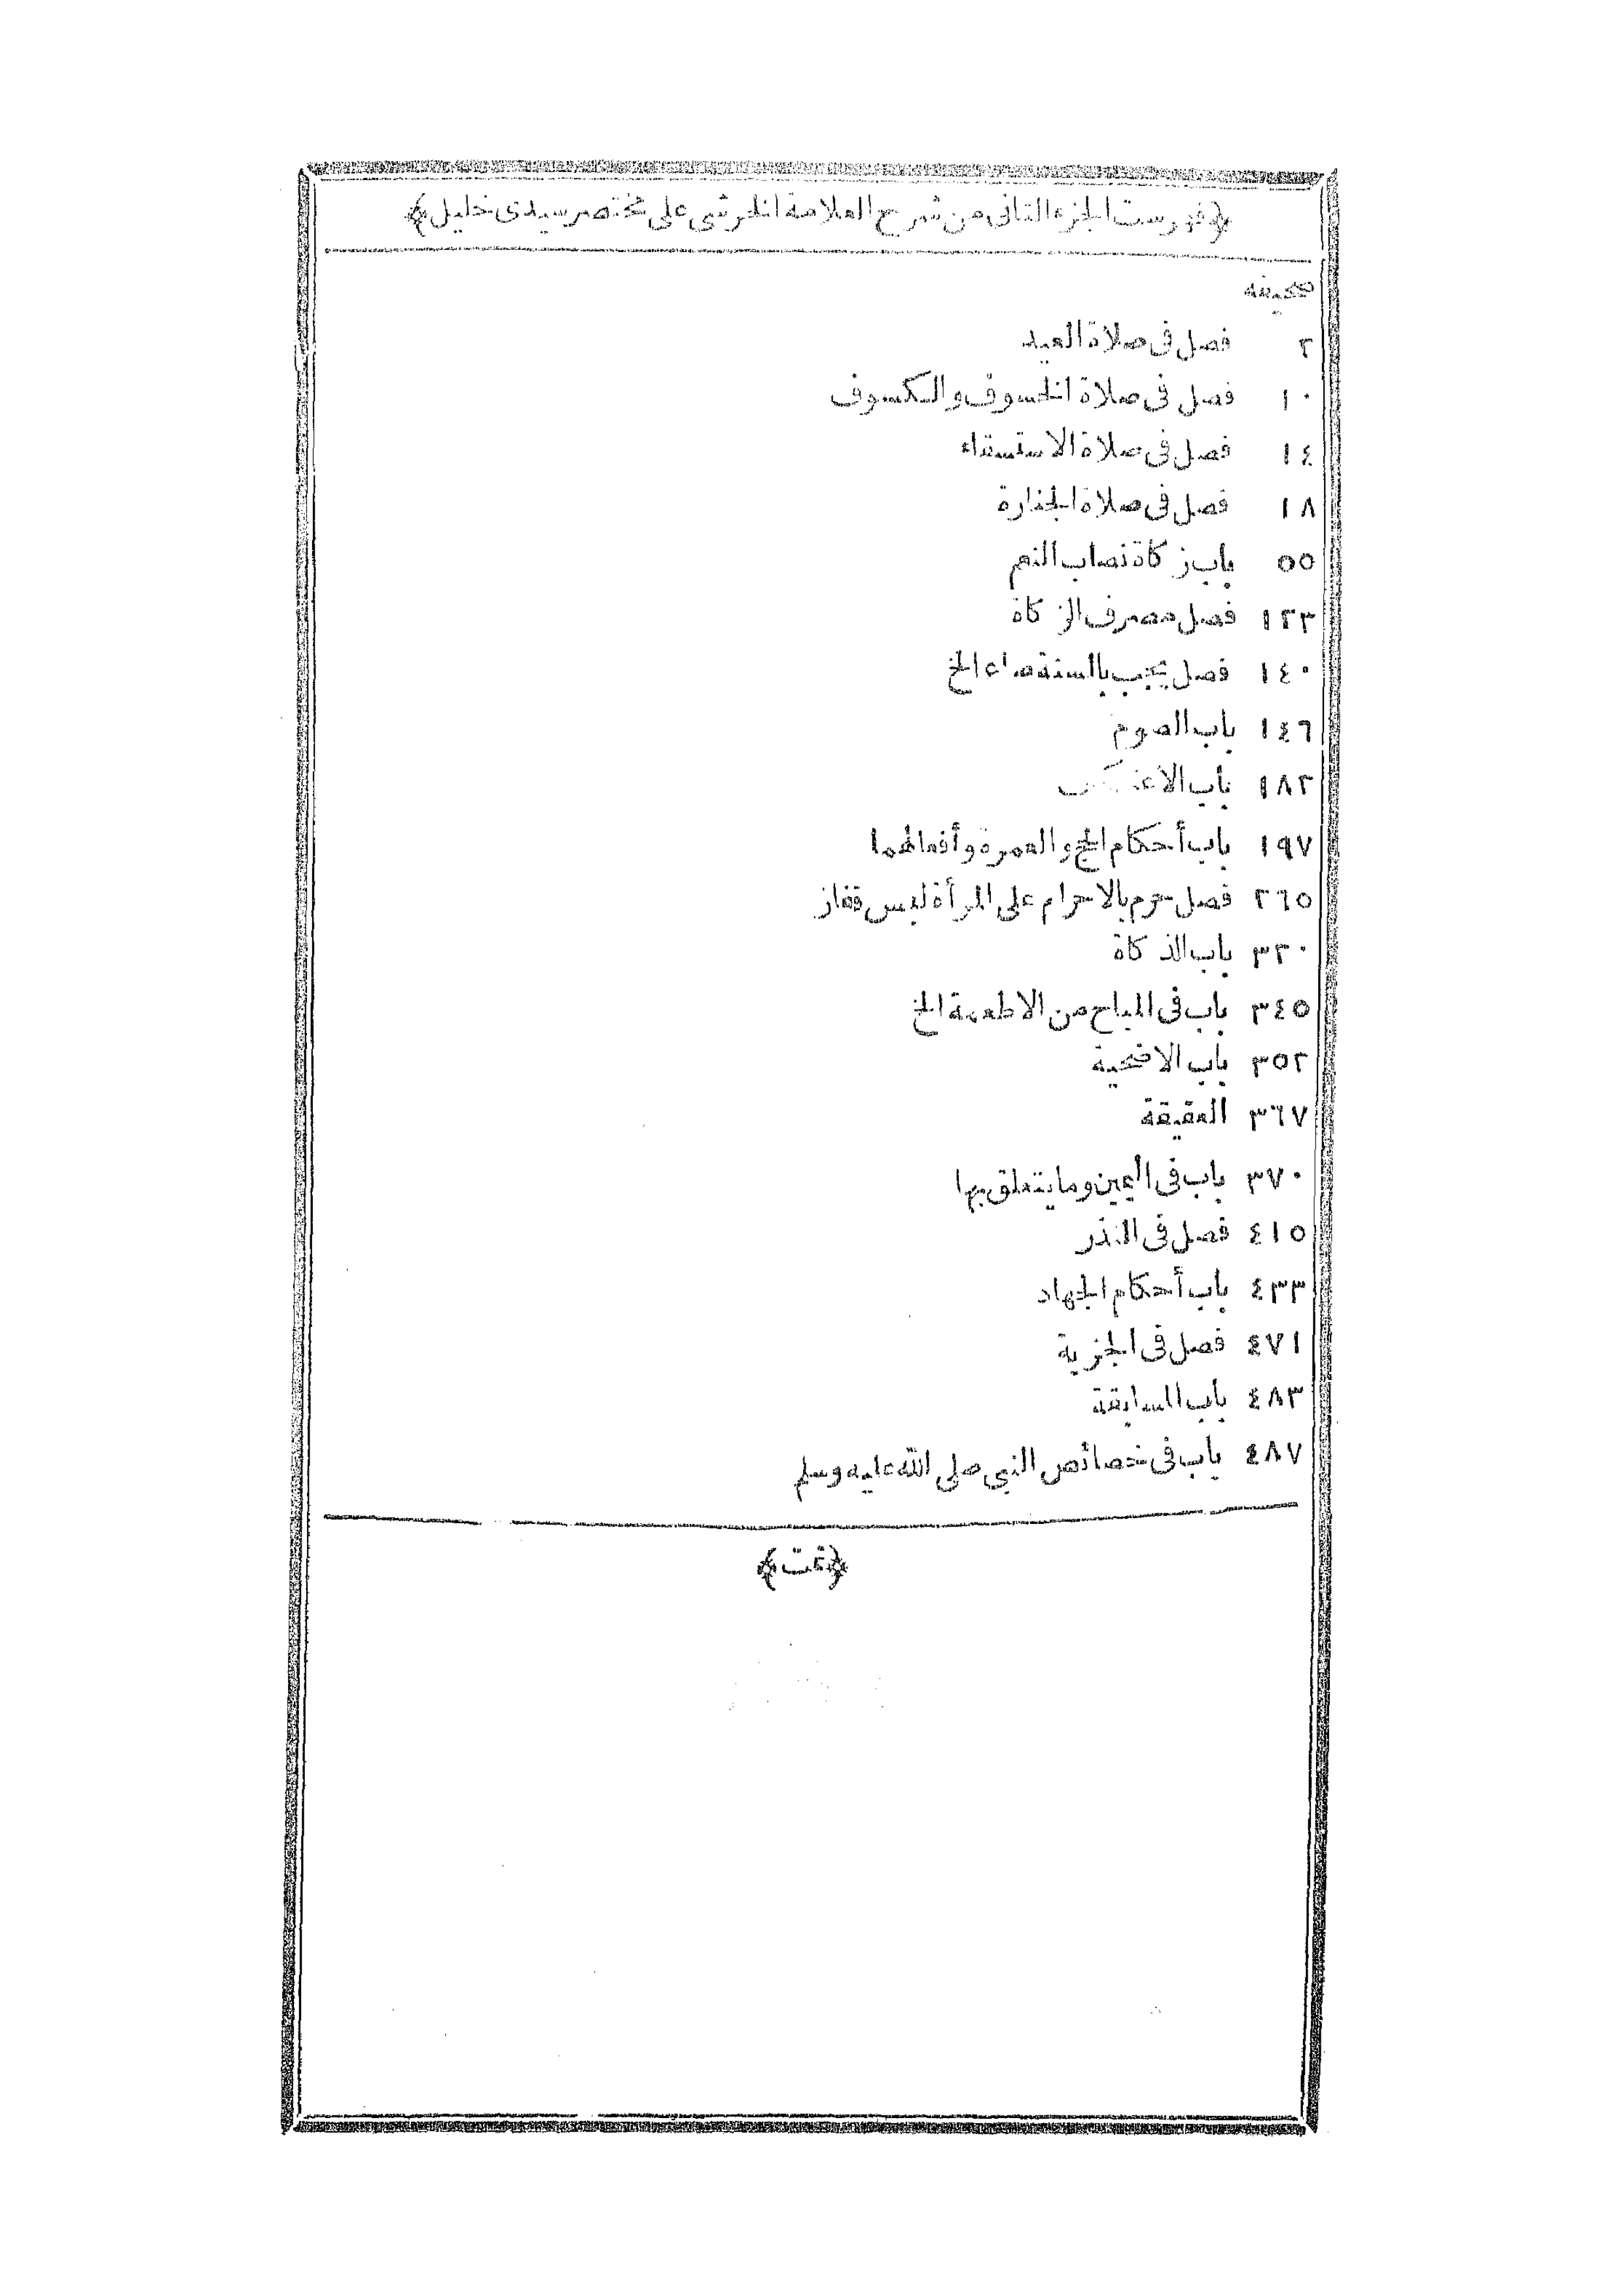 ﴿فهرست الجزء الثانى من شرح العلامة الخرشى على مختصر سيدى خليل﴾
صحيفه
٢ فصل فى صلاة العيد
١٠ فصل فى صلاة الخسوف والكسوف
١٤ فصل فى صلاة الاستسقاء
١٨ فصل فى صلاة الجنازة
٥٥ باب زكاة نصاب النعم
١٢٣ فصل مصرف الزكاة
١٤٠ فصل يجب بالسنة صاع الخ
١٤٦ باب الصوم
١٨٢ باب
١٩٧ باب أحكام الحج والعمرة وأفعالهما
٢٦٥ فصل حرم بالاحرام على المرأة لبس قفاز
٣٢٠ باب الذكاة
٣٤٥ باب فى المباح من الاطعمة الخ
٣٥٢ باب الاضحية
٣٦٧ العقيقة
٣٧٠ باب فى اليمين وما يتعلق بها
٤١٥ فصل فى النذر
٤٣٣ باب أحكام الجهاد
٤٧١ فصل فى الجزية
٤٨٣ باب المسابقة
٤٨٧ باب فى خصائص النبى صلى الله عليه وسلم
﴿تمت﴾